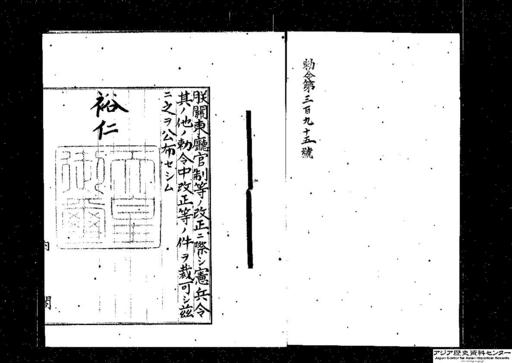 勅令第三百九十五號
朕關東廳官制等ノ改正ニ際シ憲兵令
其ノ他ノ勅令中改正等ノ件ヲ裁可シ茲
ニ之ヲ公布セシム
裕仁
天皇
御璽
内閣
アジア歴史資料センター
Japan Center for Asian Historical Records